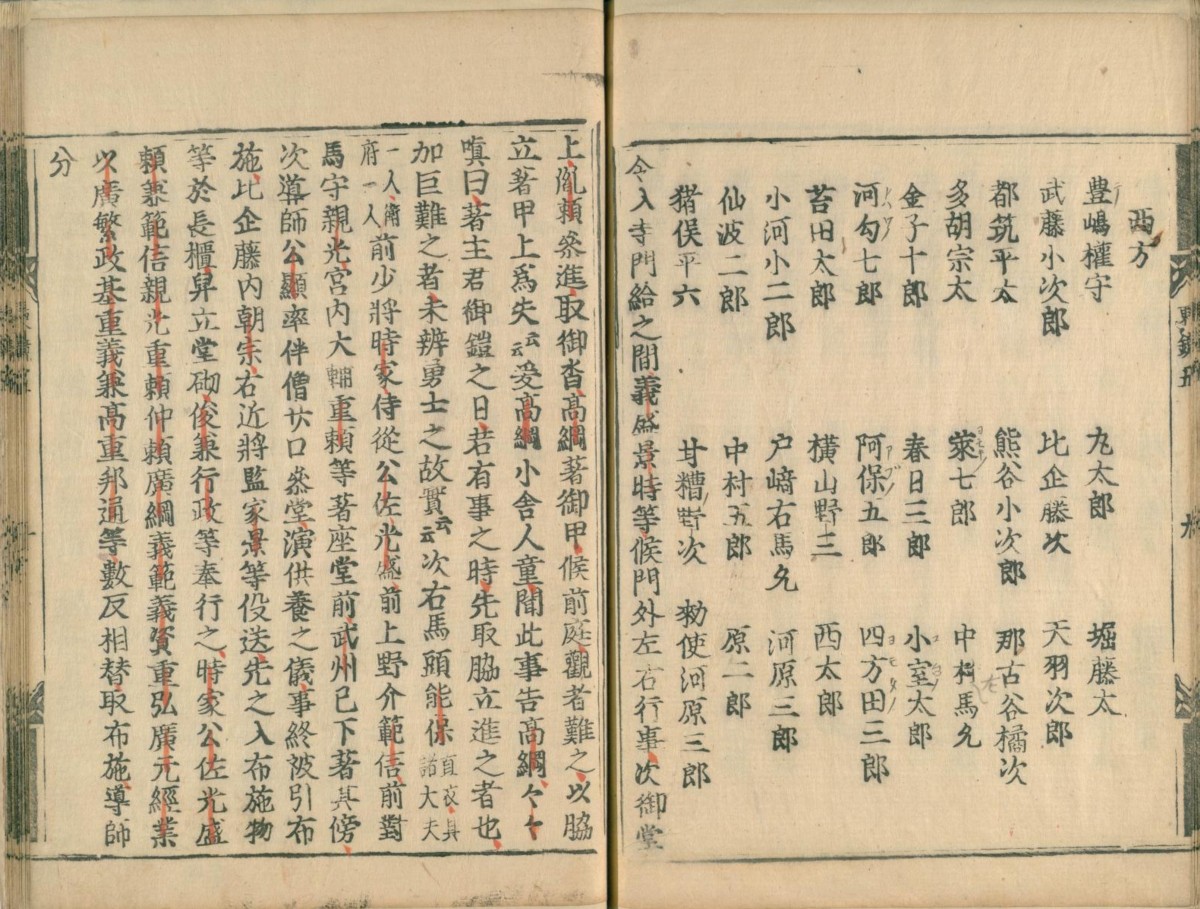 西方
豊嶋權守 九太郎 堀藤太
武藤小次郎 比企藤次 天羽次郎
都筑平太 熊谷小次郎 那古谷橘次
多胡宗太 蓬七郎 中村馬允
金子十郎 春日三郎 小室太郎
河勾七郎 阿保五郎 四方田三郎
苔田太郎 横山野三 西太郎
小河小二郎 戸﨑右馬允 河原三郎
仙波二郎 中村五郎 原二郎
猪俣平六 甘糟野次 勅使河原三郎
令入寺門給之間義盛景時等候門外左右行事次御堂
上胤頼参進取御沓高綱著御甲候前庭觀者難之以脇
立著甲上爲失云云爰高綱小舎人童聞此事告高綱々々
嗔曰著主君御鎧之日若有事之時先取脇立進之者也
加巨難之者未辨勇士之故實云云次右馬頭能保直衣具諸大夫
一人衛府一人前少將時家侍從公佐光盛前上野介範信前對
馬守親光宮内大輔重頼等著座堂前武州已下著其傍
次導師公顯率伴僧廿口参堂演供養之儀事終被引布
施比企藤内朝宗右近將監家景等役送先之入布施物
等於長櫃舁立堂砌俊兼行政等奉行之時家公佐光盛
頼兼範信親光重頼仲頼廣綱義範義資重弘廣元經業
以廣繁政基重義兼高重邦通等數反相替取布施導師
分